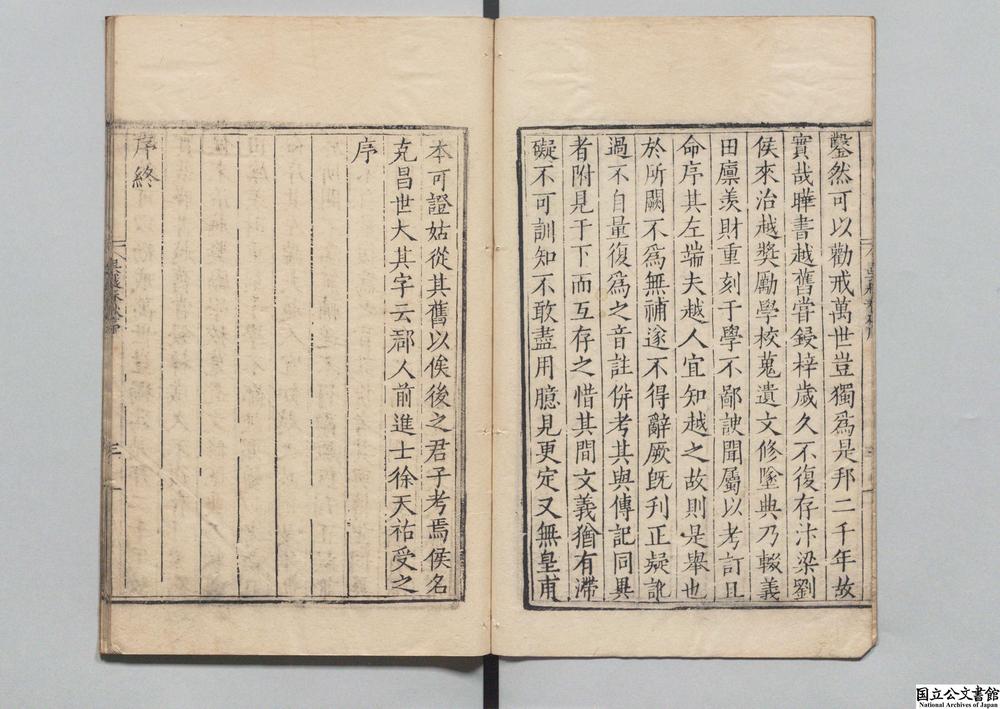 鑿然可以勸戒萬世豈獨爲是邦二千年故
實哉曄書越舊嘗鋟梓歲久不復存汴梁劉
侯來治越奬勵學校蒐遺文修墜典乃輟義
田廪羨財重刻于學不鄙諛聞屬以考訂且
命序其左端夫越人宜知越之故則是舉也
於所闕不爲無補遂不得辭厥旣刋正疑訛
過不自量復爲之音註倂考其與傳記同異
者附見于下而互存之惜其間文義猶有滯
礙不可訓知不敢盡用臆見更定又無皇甫
本可證姑從其舊以俟後之君子考焉侯名
克昌世大其字云郡人前進士徐天祐受之
序
序終
三
国立公文書館
National Archives of Japan